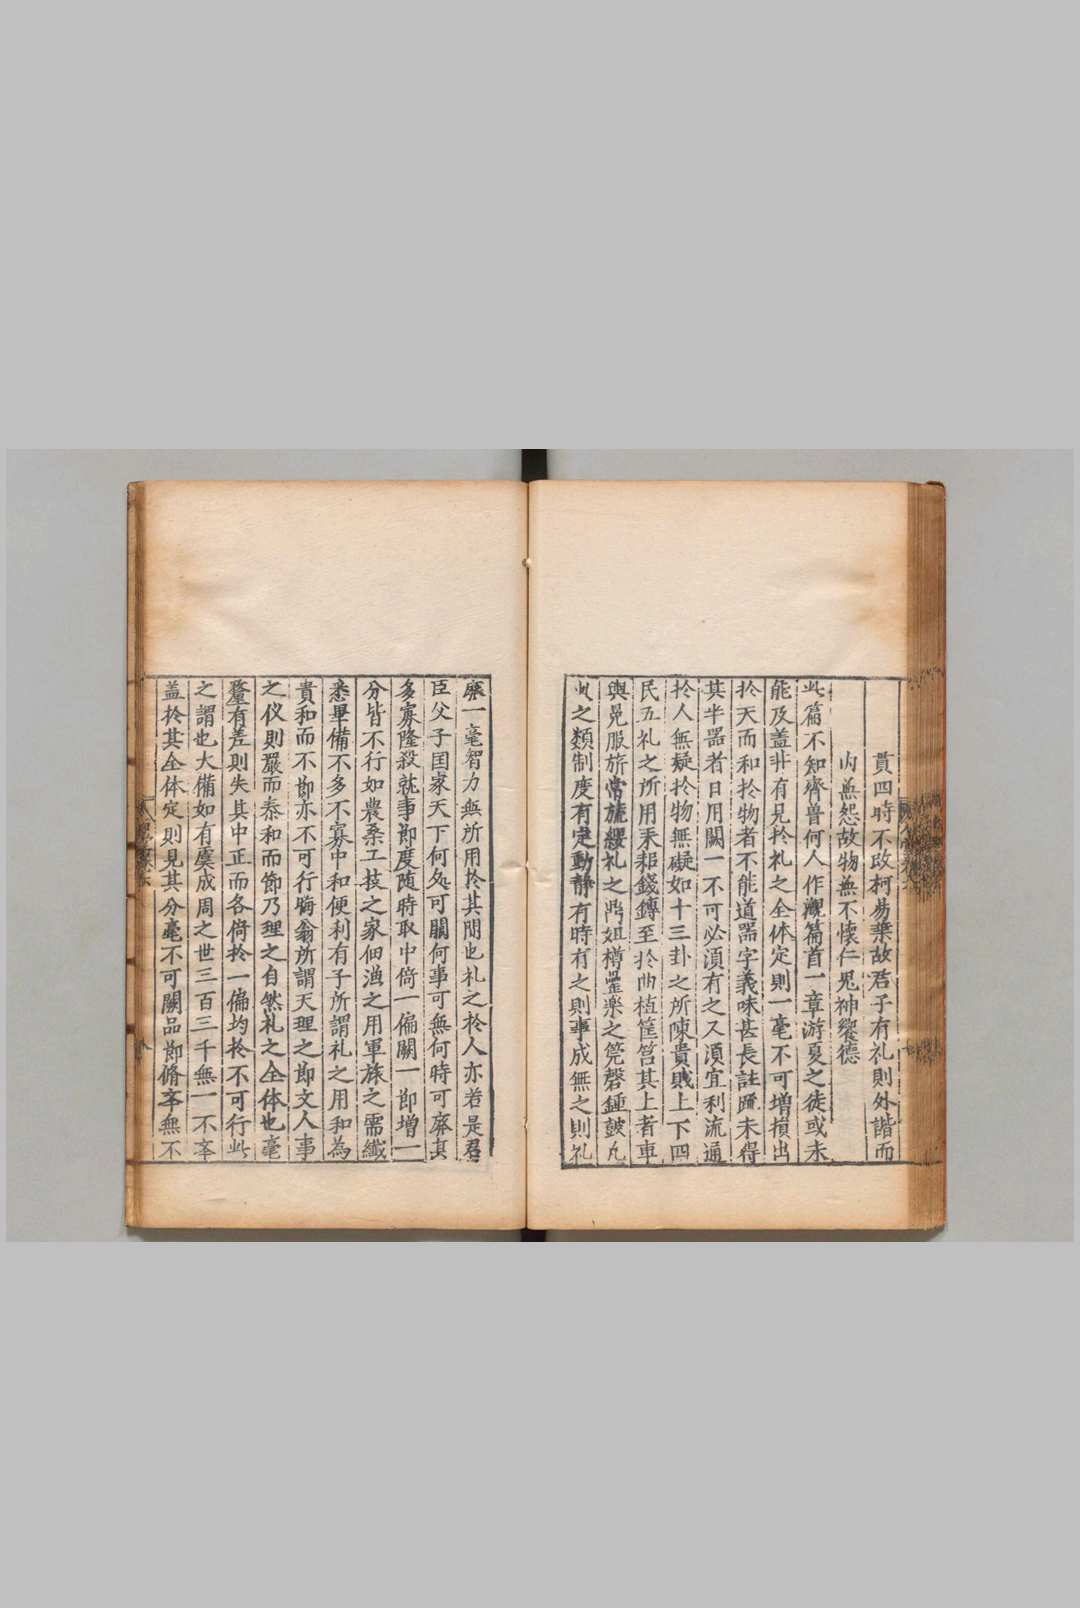 貫四時不改柯易葉故君子有礼則外諧而
内無怨故物無不懐仁鬼神饗德
此篇不知齊魯何人作觀篇首一章游夏之徒或未
能及盖井有見扵礼之全体定則一毫不可增損出
扵天而和扵物者不能道噐字義味甚長註䟽未得
其半噐者日用闕一不可必須有之又須宜利流通
扵人無疑扵物無礙如十三卦之所陳貴賎上下四
民五礼之所用耒耜錢鎛至扵曲植筐筥其上者車
輿冕服旂常旒纓礼之鼎俎樽罍楽之筦磬鍾皷凡
此之類制度有定動静有時有之則事成無之則礼
廢一毫智力無所用扵其間也礼之扵人亦若是君
臣父子囯家天下何處可闕何事可無何時可廢其
多寡隆殺就事即度随時取中倚一偏闕一即增一
分皆不行如農桑工技之家佃漁之用軍旅之需纎
悉畢備不多不寡中和便利有子所謂礼之用和為
貴和而不即亦不可行晦翁所謂天理之即文人事
之仪則嚴而泰和而節乃理之自然礼之全体也毫
釐有差則失其中正而各倚扵一偏均扵不可行此
之謂也大備如有虞成周之世三百三千無一不夲
盖扵其全体定則見其分毫不可闕品即脩夲無不